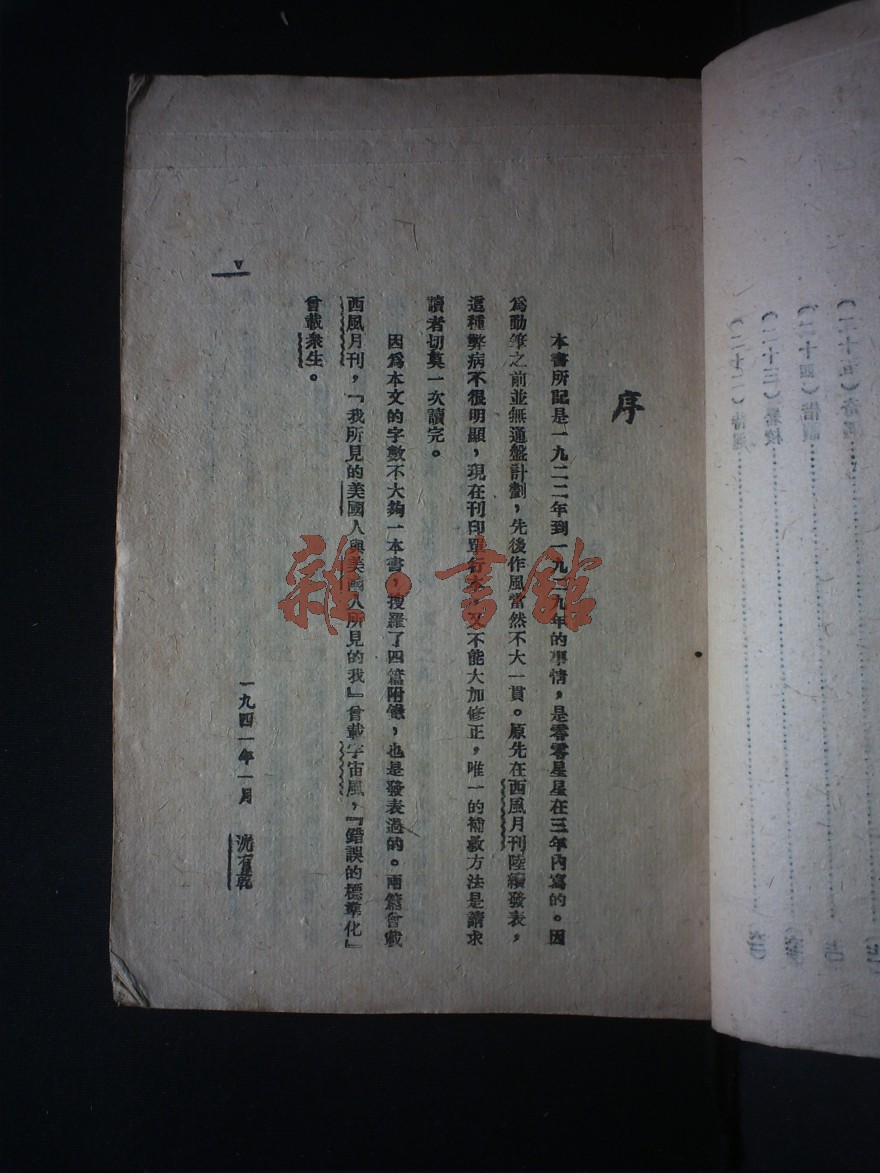 序
本書所記是一九二二年到一九二九年的事情，是零零星星在三年內寫的。因
爲動筆之前並無通盤計劃，先後作風當然不大一貫。原先在西風月刊陸續發表，
這種弊病不很明顯，現在刊印單行本，又不能大加修正，唯一的補救方法是請求
讀者切莫一次讀完。
因爲本文的字數不大夠一本書，搜羅了四篇附錄，也是發表過的。兩篇曾載
西風月刊，『我所見的美國人與美國人所見的我』曾載宇宙風，『錯誤的標準化』
曾載衆生。
一九四一年一月
沈有乾
V
雜·書館